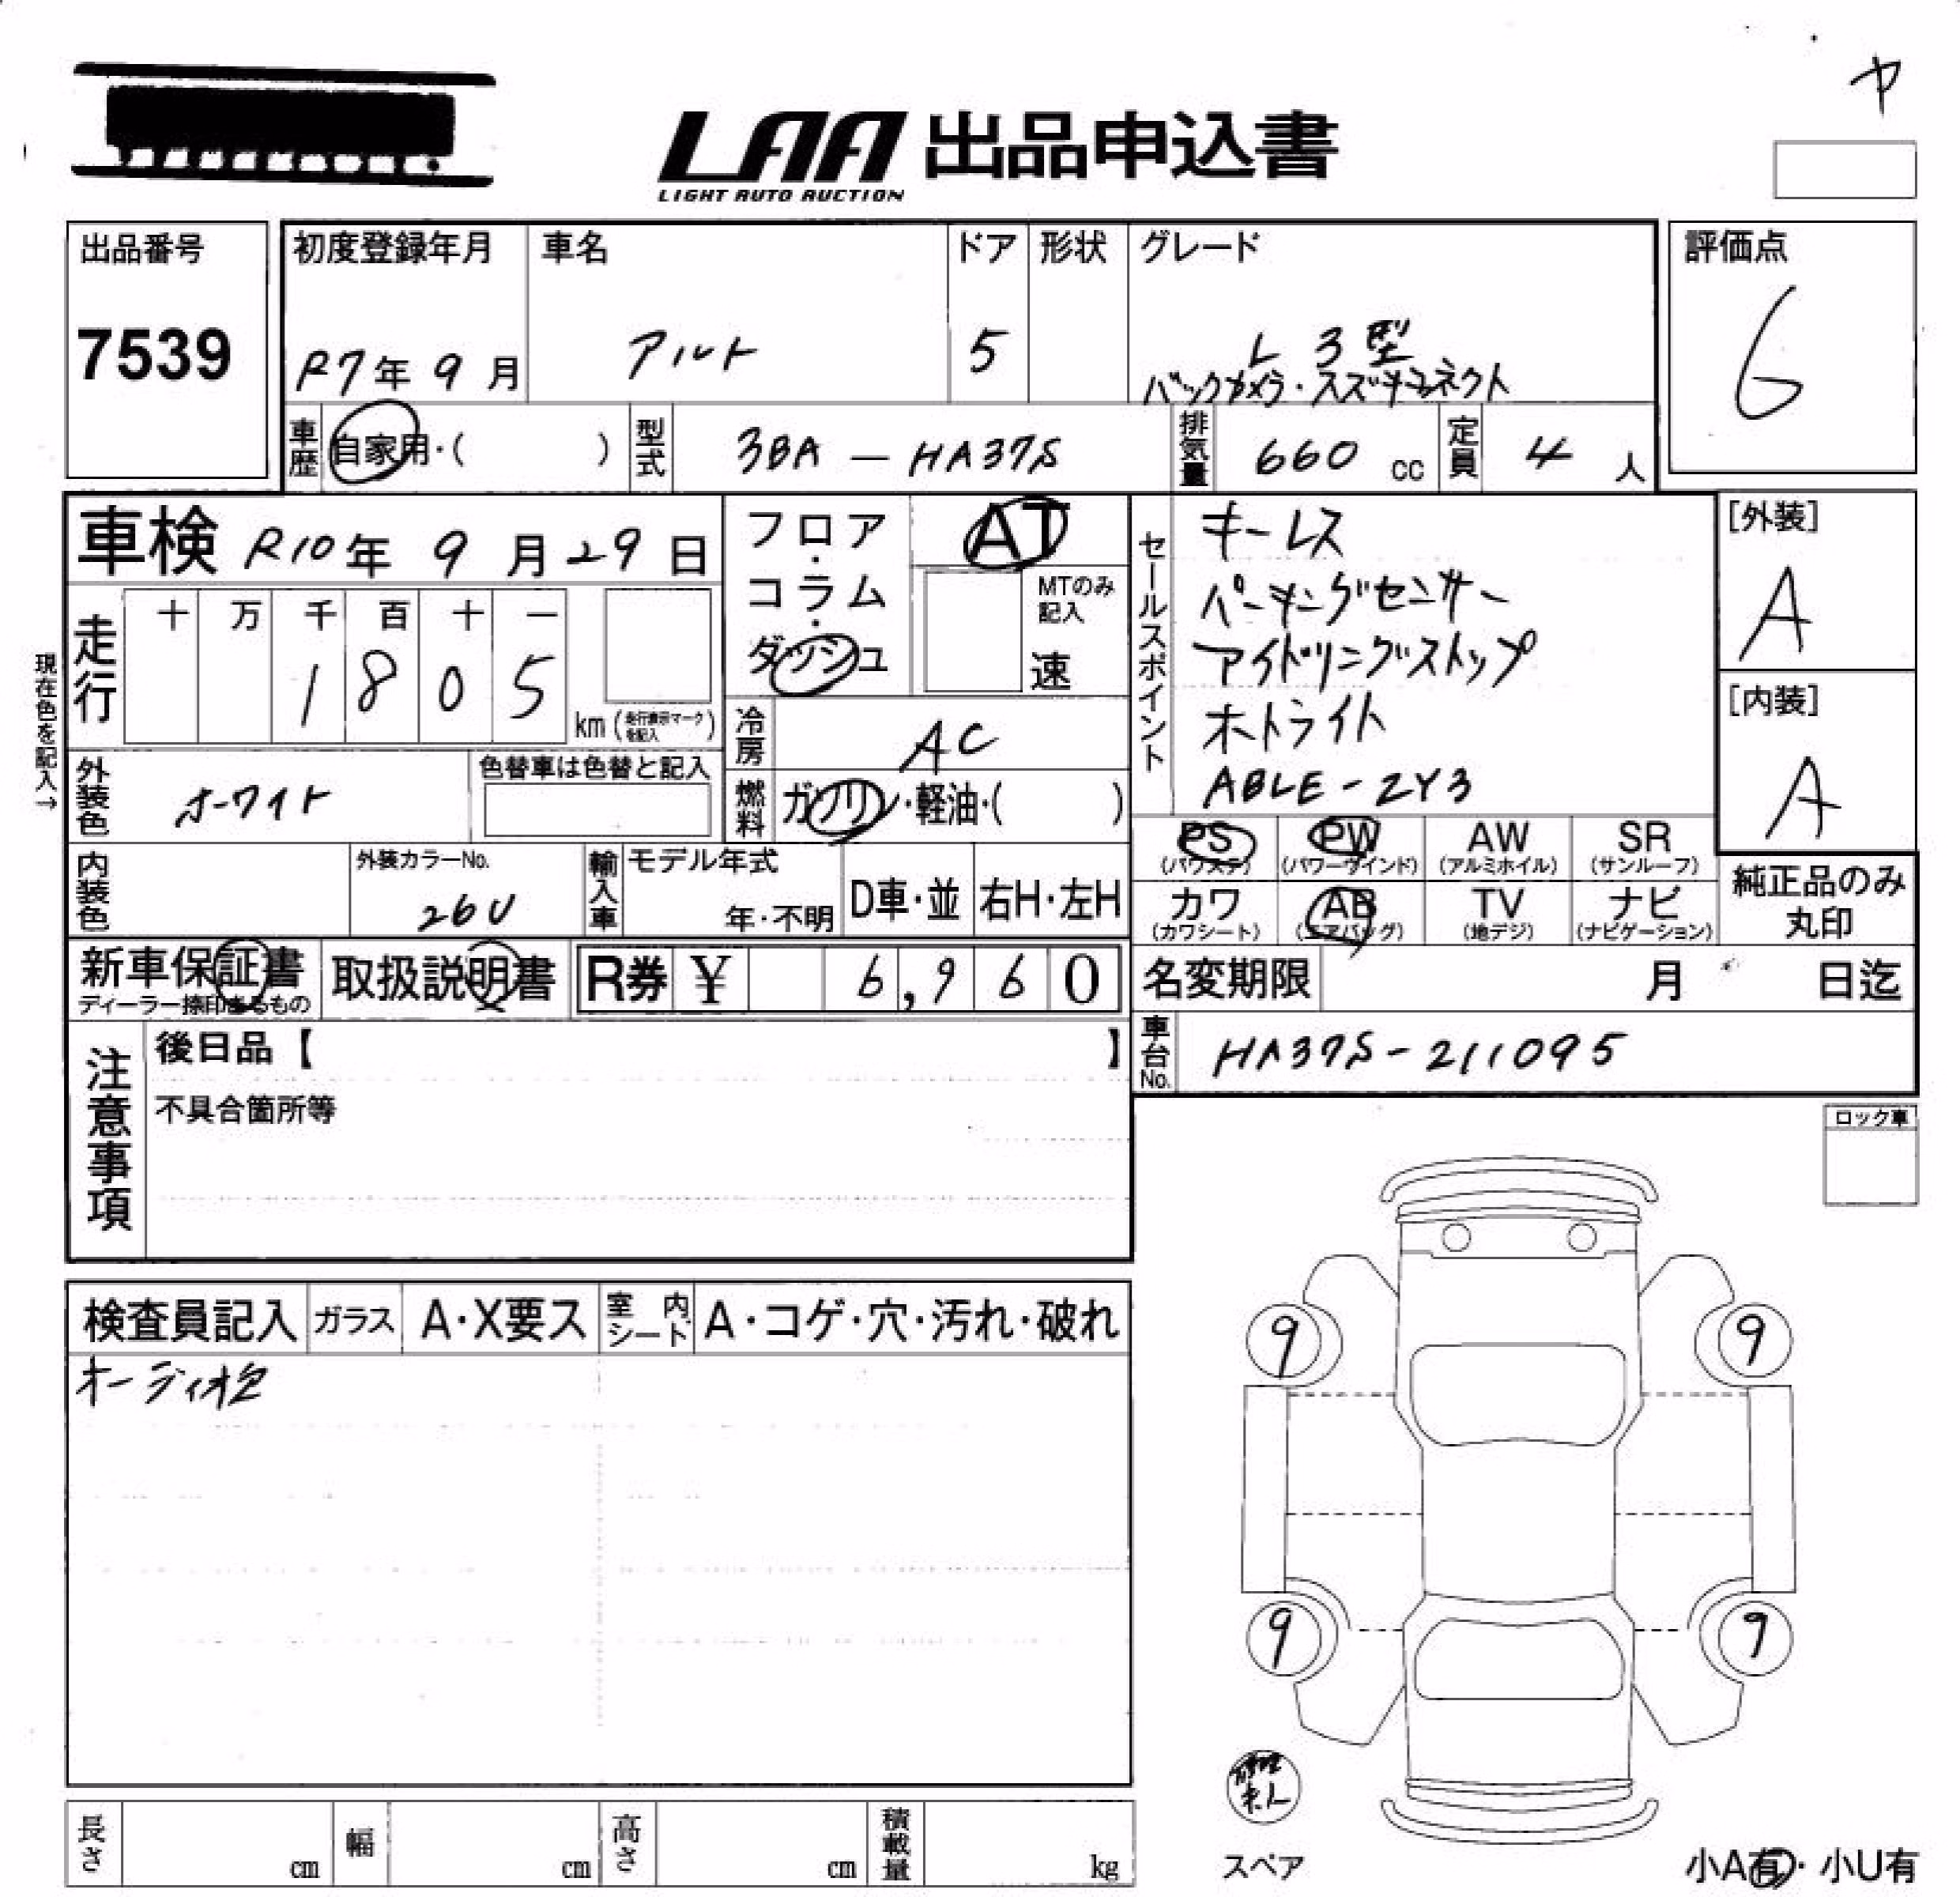 ヤ
LAA 出品申込書
LIGHT AUTO AUCTION
出品番号
7539
初度登録年月
R7年 9月
車名
アルト
ドア
5
形状
グレード
L 3型
バックカメラ・スズキコネクト
評価点
6
車歴
自家用・( )
型式
3BA - HA37S
排気量
660 cc
定員
4 人
車検 R10年 9月 29日
フロア・コラム・ダッシュ
AT
MTのみ記入
速
セールスポイント
キーレス
パーキングセンサー
アイドリングストップ
オートライト
ABLE-ZY3
[外装]
A
[内装]
A
現在色を記入→
走行
十 万 千 百 十 一
1 8 0 5
km (走行表示マークを記入)
冷房
AC
外装色
ホワイト
色替車は色替と記入
燃料
ガソリン・軽油・( )
PS (パワステ)
PW (パワーウインド)
AW (アルミホイル)
SR (サンルーフ)
内装色
外装カラーNo.
26U
輸入車
モデル年式
年・不明
D車・並
右H・左H
カワ (カワシート)
AB (エアバッグ)
TV (地デジ)
ナビ (ナビゲーション)
純正品のみ丸印
新車保証書
ディーラー捺印あるもの
取扱説明書
R券 ¥ 6,960
名変期限 月 日迄
車台No.
HA37S-211095
注意事項
後日品【 】
不具合箇所等
ロック車
検査員記入
ガラス
A・X要ス
室内シート
A・コゲ・穴・汚れ・破れ
オーディオ
9 9
9 9
スペア
小A有・小U有
長さ cm
幅 cm
高さ cm
積載量 kg